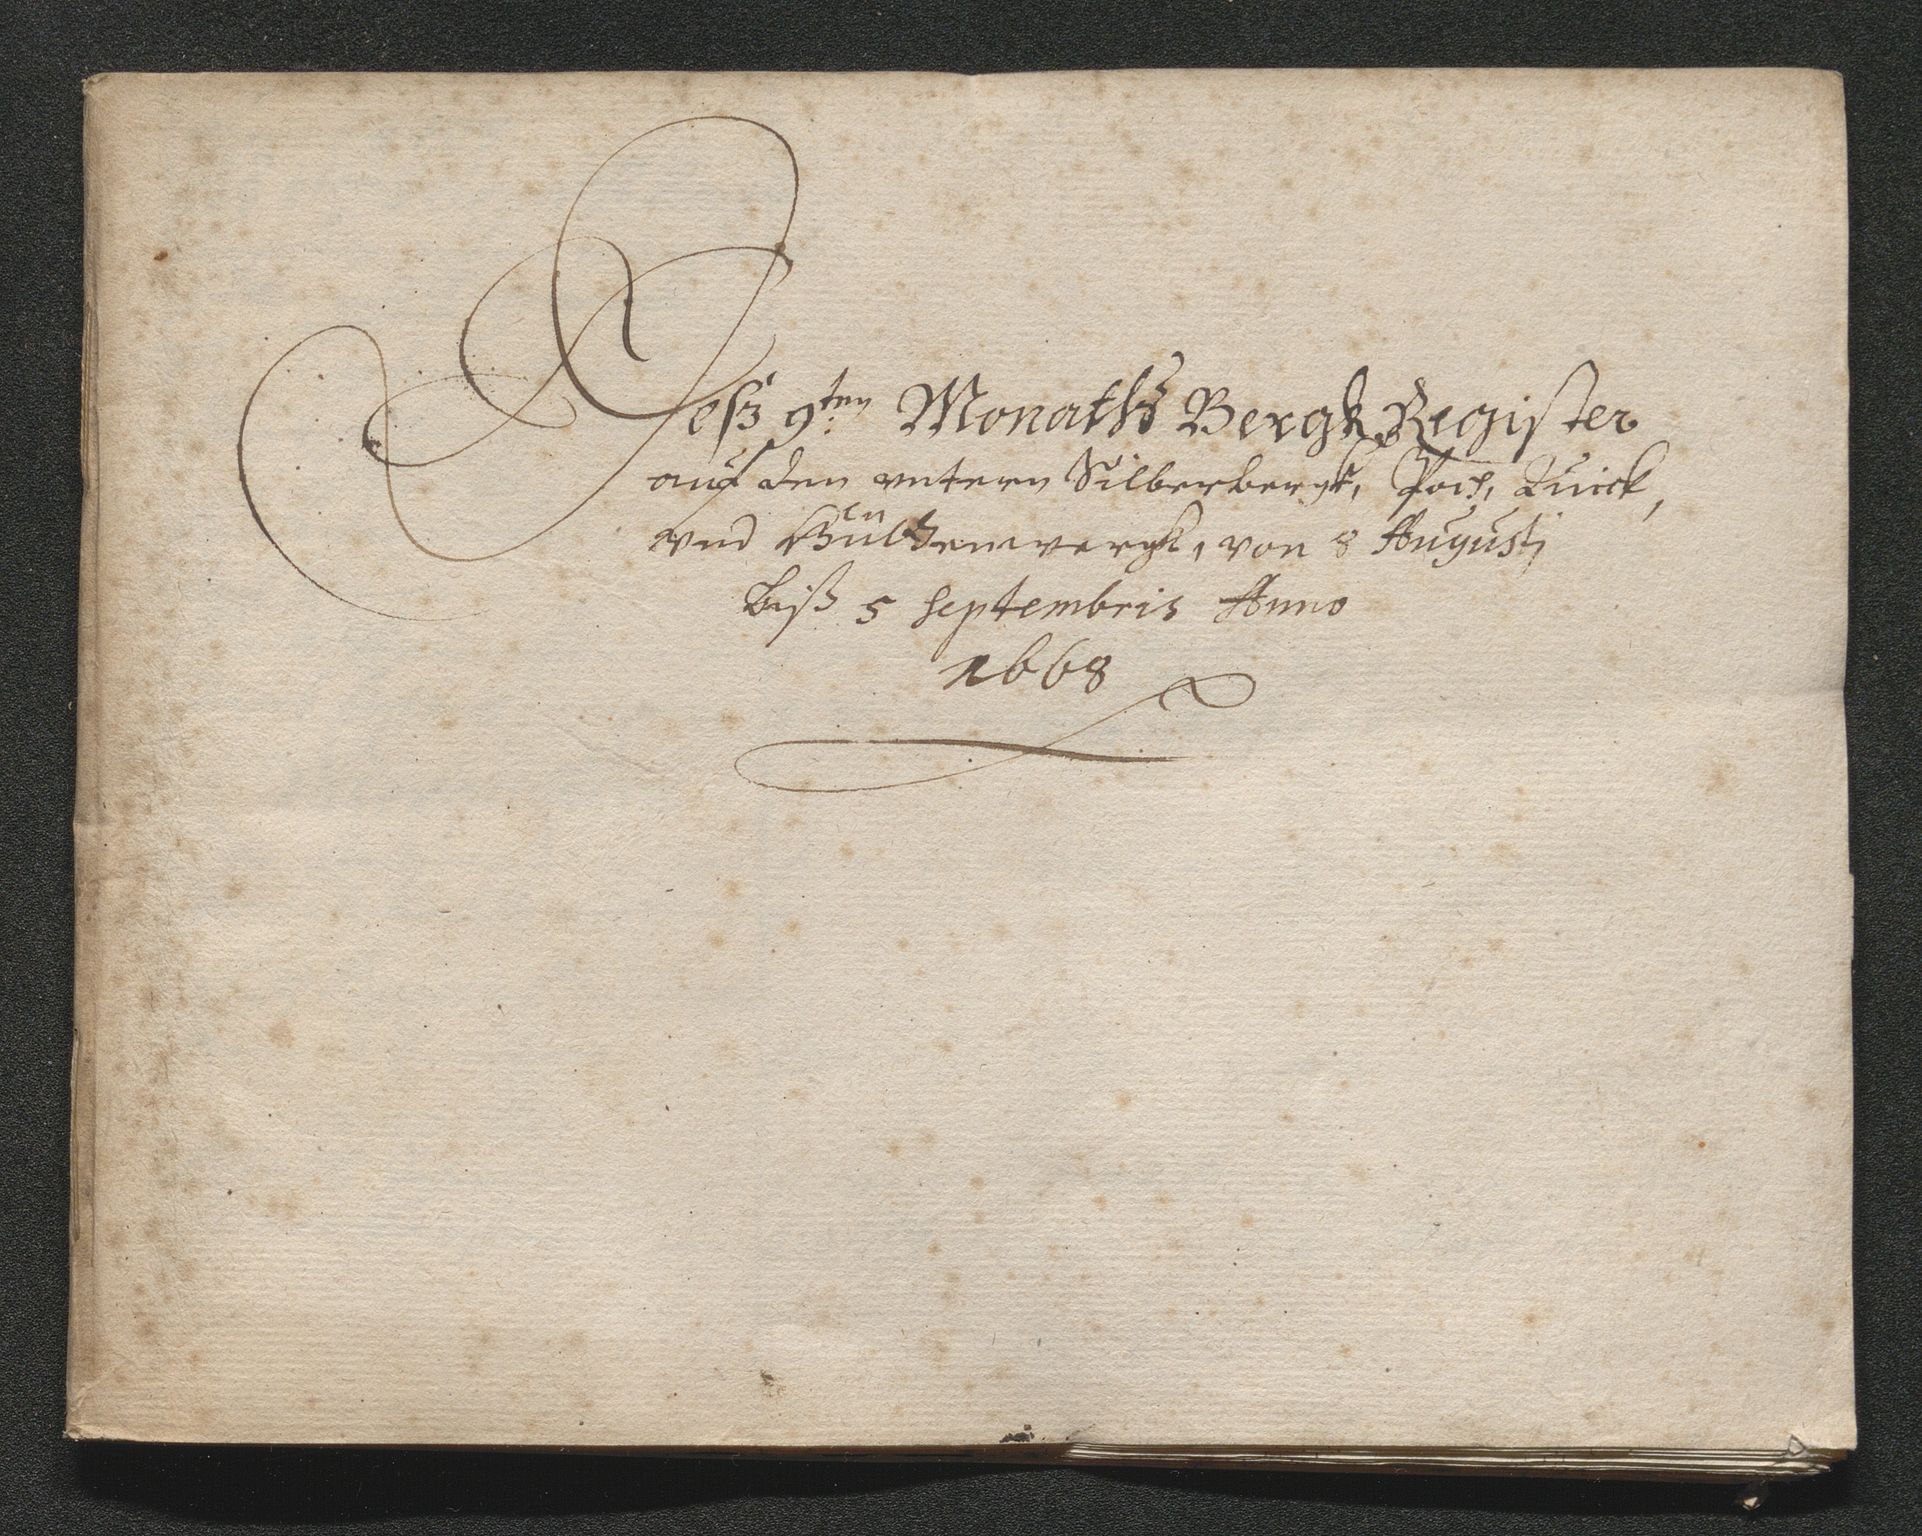 Deß 9ten Monaths Bergk Register
auf den vntern Silberbergk, Poch, Quick,
vnd Hüttenwergk, von 8 Augusti
biß 5 Septembris Anno
1668